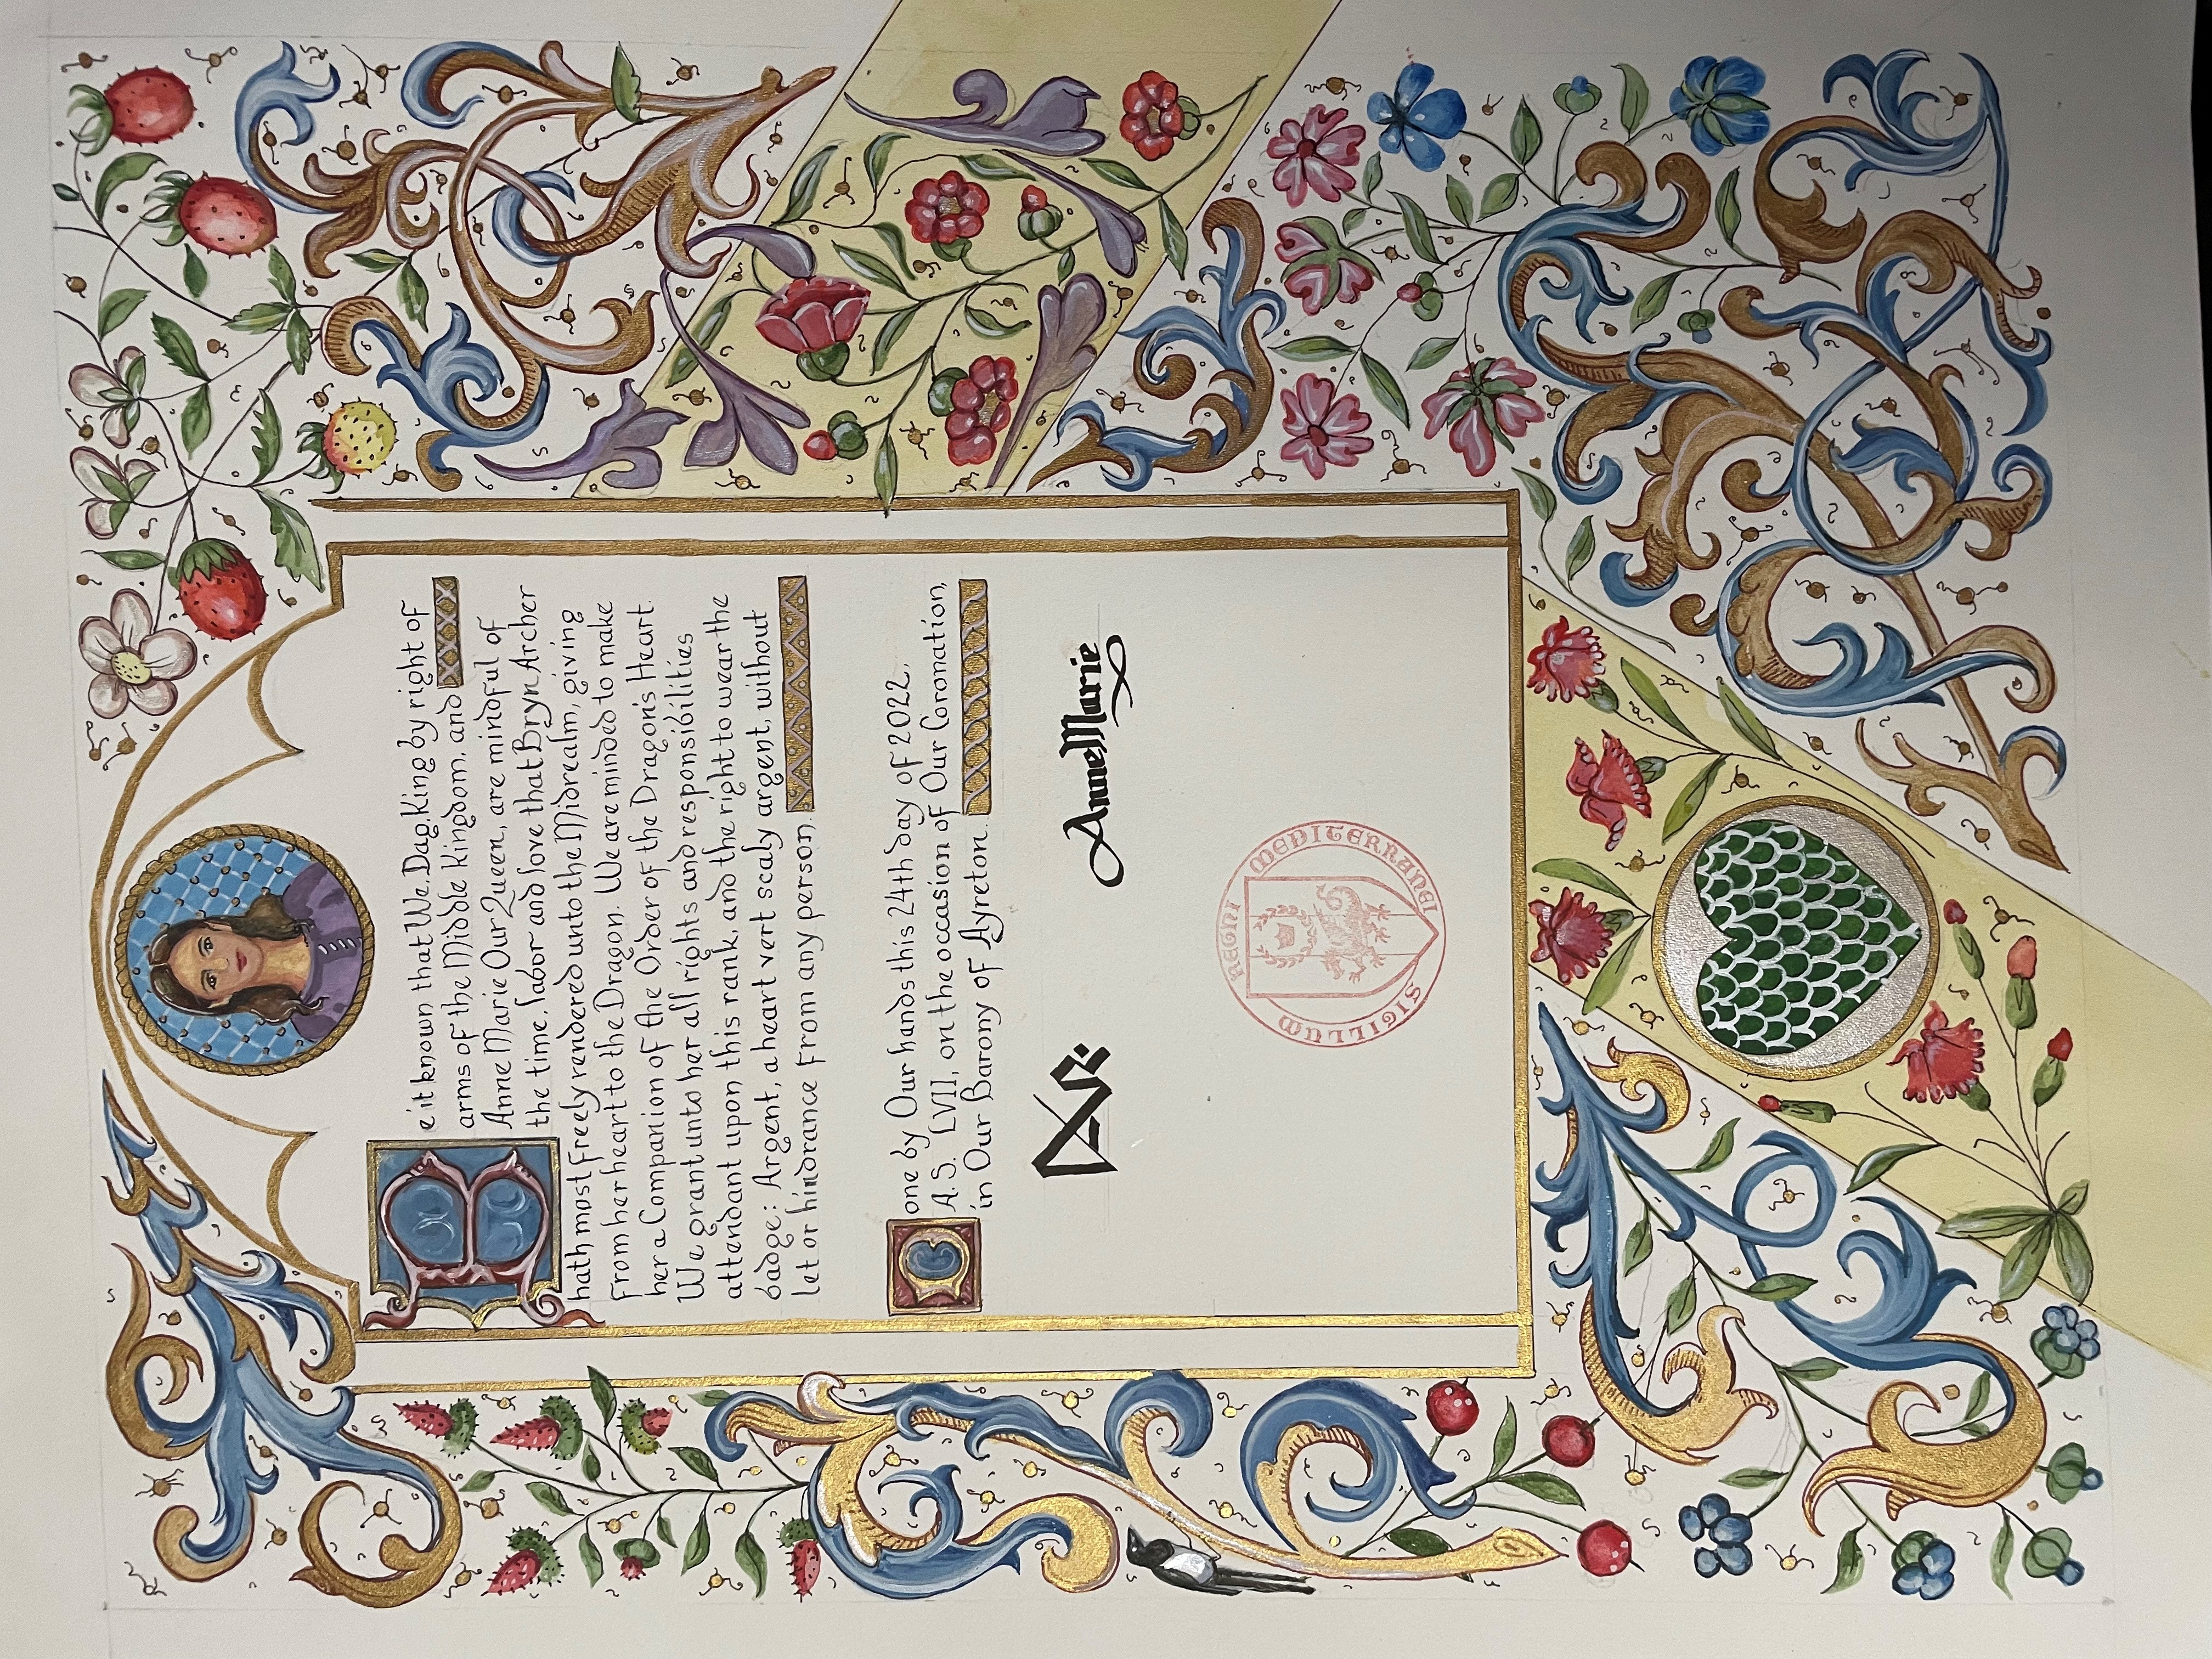 Be it known that We, Dag, King by right of
arms of the Middle Kingdom, and
Anne Marie Our Queen, are mindful of
the time, labor and love that Bryn Archer
hath most freely rendered unto the Midrealm, giving
from her heart to the Dragon. We are minded to make
her a Companion of the Order of the Dragon's Heart.
We grant unto her all rights and responsibilities
attendant upon this rank, and the right to wear the
badge: Argent, a heart vert scaly argent, without
let or hindrance from any person.
Done by Our hands this 24th day of 2022,
A.S. LVII, on the occasion of Our Coronation,
in Our Barony of Ayreton.
AnneMarie
SIGILLUM REGNI MEDITERRANEI